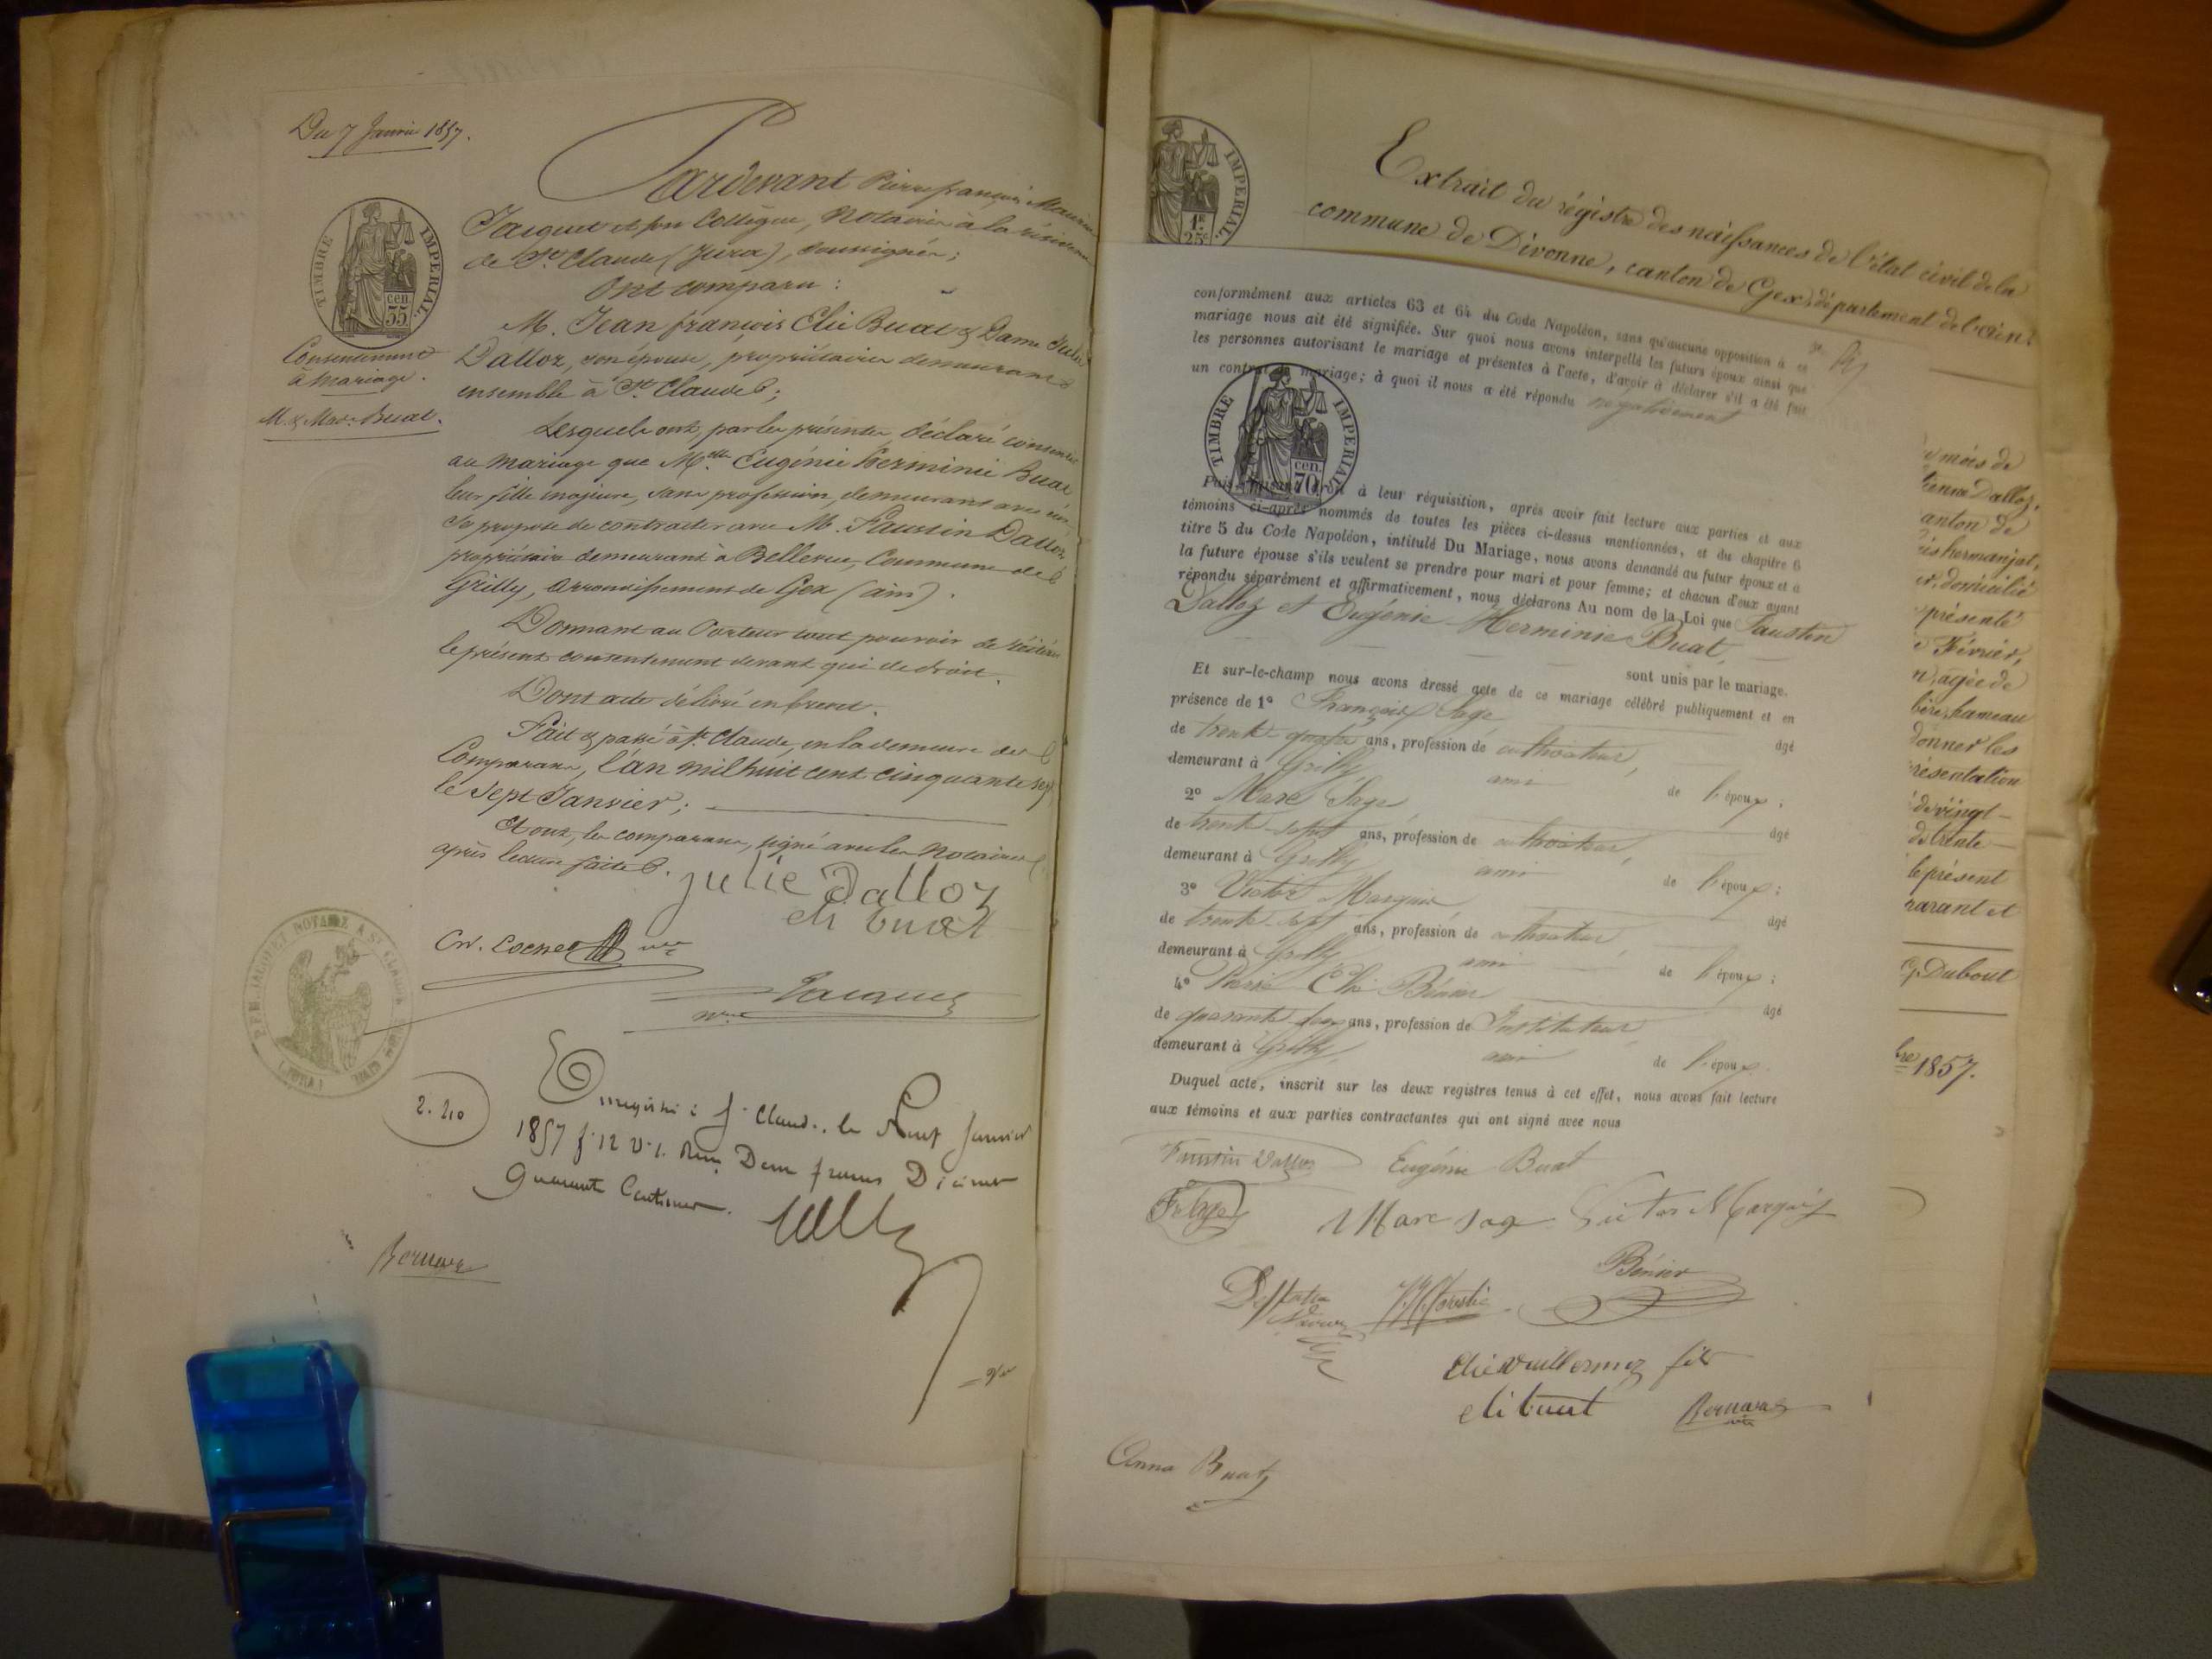 Du 7 Janvier 1857.
TIMBRE IMPERIAL
cen.
35
Consentement
à mariage.
M. & Mad.e Buat.
Pardevant Pierre françois Maurice
Jacquet et son Collègue, Notaires à la résidence
de St. Claude (Jura), soussignés;
Ont comparu :
M. Jean françois Elie Buat & Dame Julie
Dalloz, son épouse, propriétaires demeurans
ensemble à St. Claude;
Lesquels ont, par les présentes, déclaré consentir
au mariage que Melle Eugénie Herminie Buat
leur fille majeure, sans profession, demeurant avec eux
Se propose de contracter avec M. Faustin Dalloz,
propriétaire demeurant à Bellevue, Commune de
Grilly, arrondissement de Gex (ain).
Donnant au Porteur tout pouvoir de réitérer
le présent consentement devant qui de droit.
Dont acte délivré en brevet.
Fait & passé à St. Claude, en la demeure des
Comparans, l'an mil huit cent cinquante sept
le Sept Janvier;
Et ont, les comparans, signé avec les Notaires
après lecture faite.
julie Dalloz
eli buat
Jacquet
2. 40
Enregistré à St Claude le Neuf Janvier
1857 f. 12 v. Deux francs Décimes
Quarante Centimes.
Extrait du régistre des naissances de l'état civil de la
commune de Divonne, canton de Gex, département de l'ain:
IMPERIAL.
1F.
25c
conformément aux articles 63 et 64 du Code Napoléon, sans qu'aucune opposition à ce
mariage nous ait été signifiée. Sur quoi nous avons interpellé les futurs époux ainsi que
les personnes autorisant le mariage et présentes à l'acte, d'avoir à déclarer s'il a été fait
un contrat de mariage; à quoi il nous a été répondu négativement
TIMBRE IMPERIAL
cen.
70
Puis, faisant droit à leur réquisition, après avoir fait lecture aux parties et aux
témoins ci-après nommés de toutes les pièces ci-dessus mentionnées, et du chapitre 6
titre 5 du Code Napoléon, intitulé Du Mariage, nous avons demandé au futur époux et à
la future épouse s'ils veulent se prendre pour mari et pour femme; et chacun d'eux ayant
répondu séparément et affirmativement, nous déclarons Au nom de la Loi que Faustin
Dalloz et Eugénie Herminie Buat,
sont unis par le mariage.
Et sur-le-champ nous avons dressé acte de ce mariage célébré publiquement et en
présence de 1° François Sage âgé
de trente-quatre ans, profession de cultivateur,
demeurant à Grilly, ami de l'époux;
2° Marc Sage âgé
de trente-sept ans, profession de cultivateur,
demeurant à Grilly ami de l'époux;
3° Victor Marquis âgé
de trente-sept ans, profession de cultivateur
demeurant à Grilly, ami de l'époux;
4° Pierre Elie Bénier âgé
de quarante ans, profession de Instituteur
demeurant à Grilly, ami de l'époux.
Duquel acte, inscrit sur les deux registres tenus à cet effet, nous avons fait lecture
aux témoins et aux parties contractantes qui ont signé avec nous
Faustin Dalloz Eugénie Buat
Marc Sage Victor Marquis
Bénier
Elie Vuillermoz fils
eli buat
Anna Buat
mois de
Dalloz,
anton de
domicilié
présenté
Février,
n, agée de
hameau
donner les
résentation
de vingt-
de trente-
le présent
parant et
G. Dubout
bre 1857.